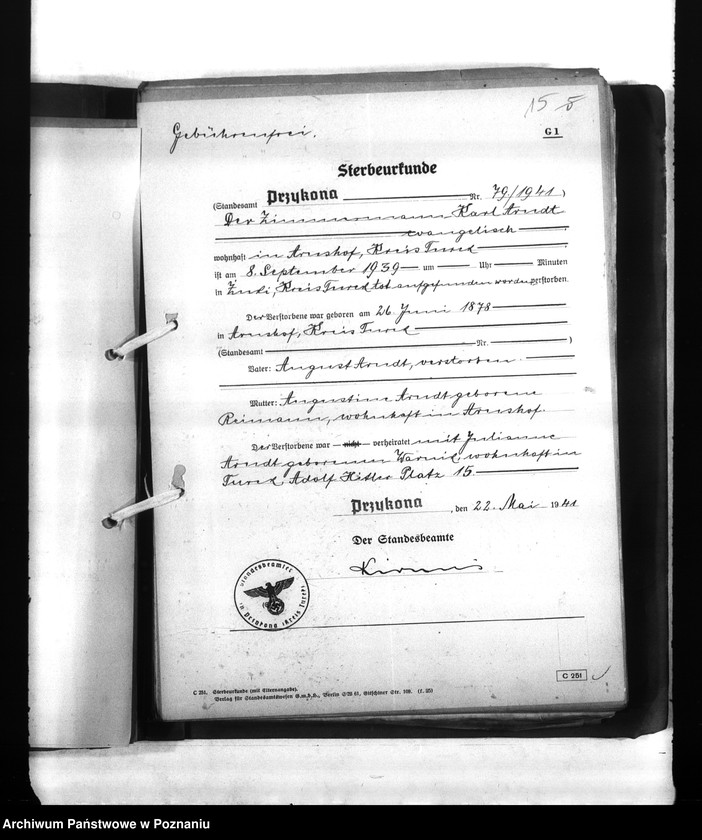 15 8
Gebührenfrei.
G1
Sterbeurkunde
(Standesamt Przykona Nr. 79/1941)
Der Zimmermann Karl Arndt
evangelisch
wohnhaft in Arnshof, Kreis Turek
ist am 8. September 1939 um Uhr Minuten
in Żuki, Kreis Turek tot aufgefunden worden verstorben.
Der Verstorbene war geboren am 26. Juni 1878
in Arnshof, Kreis Turek
(Standesamt Nr. )
Vater: August Arndt, verstorben.
Mutter: Augustine Arndt geborene
Reimann, wohnhaft in Arnshof.
Der Verstorbene war nicht verheiratet mit Julianne
Arndt geborenen, wohnhaft in
Turek, Adolf Hitler Platz 15.
Przykona, den 22. Mai 1941
Der Standesbeamte
Standesbeamter
in Przykona (Kreis Turek)
C 251
C 251. Sterbeurkunde (mit Elternangabe).
Verlag für Standesamtswesen G.m.b.H., Berlin SW 61, Gitschiner Str. 109.
Archiwum Państwowe w Poznaniu